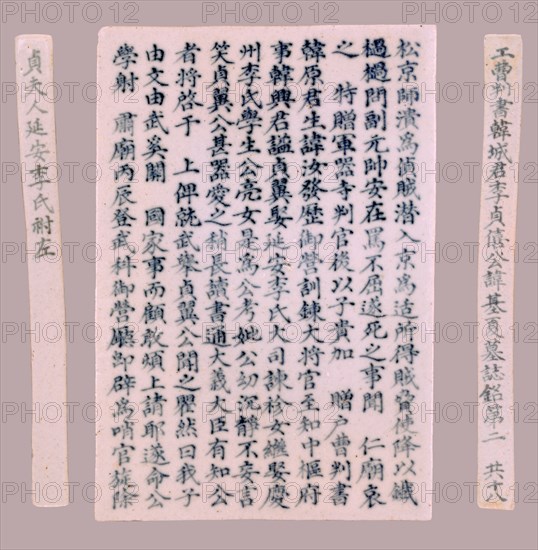 工曹判書韓城君李貞僖公諱基夏墓誌銘第二 共十八
松京師潰爲偵賊潜入京爲适所得賊脅使降以鐵
檛撾問副元帥安在罵不屈遂死之事聞 仁廟哀
之 特贈軍器寺判官後以子貴加 贈戶曹判書
韓原君生諱汝發歷御營訓鍊大將官至知中樞府
事韓興君謚貞翼娶延安李氏大司諫袗女繼娶慶
州李氏學生公亮女是爲公考妣公幼沉靜不妄言
笑貞翼公甚器愛之稍長讀書通大義大臣有知公
者將啓于 上俾就武擧貞翼公聞之瞿然曰我子
由文由武奚關 國家事而顧敢煩上請耶遂命公
學射 肅廟丙辰登武科御營廳卽辟爲哨官旋除
貞夫人延安李氏祔左
PHOTO12